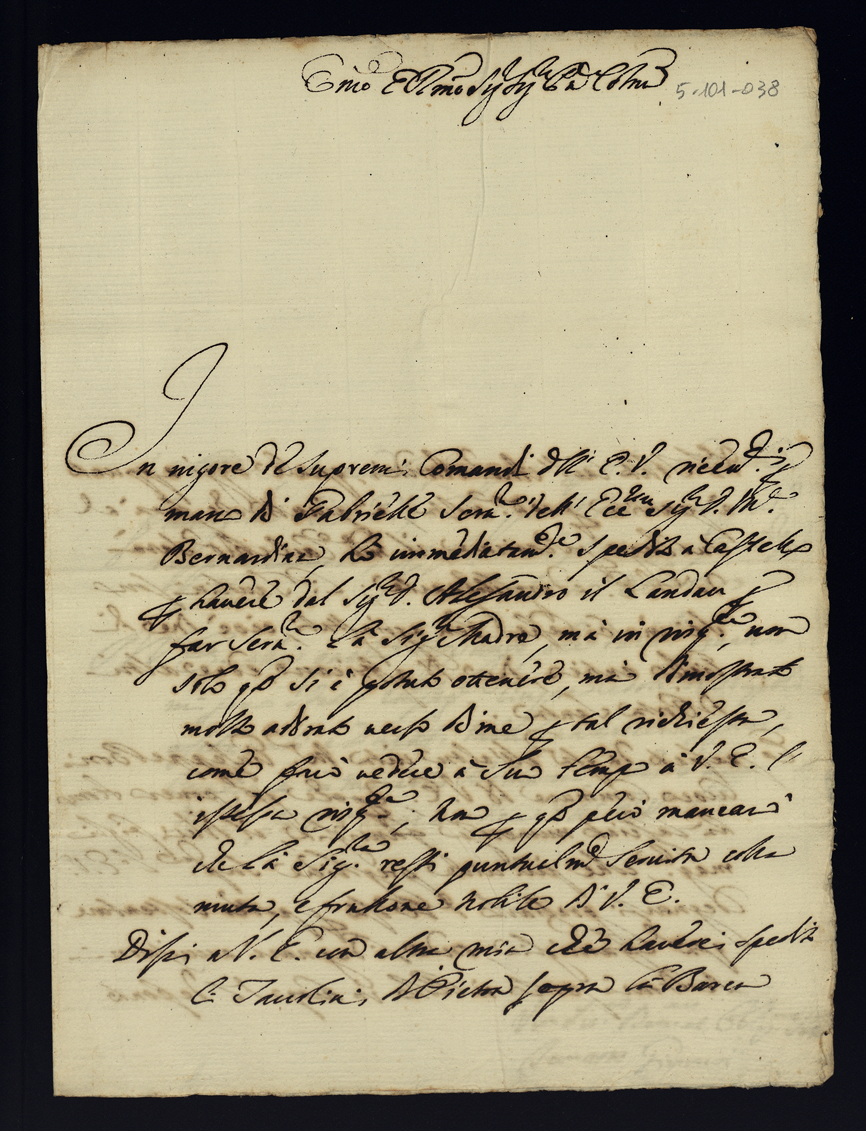 Em̃o e Rmo Sig.r Sig.r Pñe Colmo
5-101-038
In vigore de supremi Comandi dell' E. V. ricevuti p
mano di Gabriele Serv.e dell' Ecc.mo Sig.r D.
Bernardino, hò immediatam.te spedito a Castello
p havere dal Sig.r D. Alessandro il Landau p
far servire la Sig.ra Madre, mà in risp.ta non
solo qto si è potuto ottenere, mà dimostrato
molto adirato verso di me p tal richiesta,
come farò vedere à suo tempo à V. E. l'
istessa risp.ta; Non p qto però mancarò
che la Sig.ra resti puntualm.te servita colla
muta, e frullone nobile di V. E.
Dissi a V. E. con altra mia che haverei spedito
li Tavolini di Pietra sopra la Barca